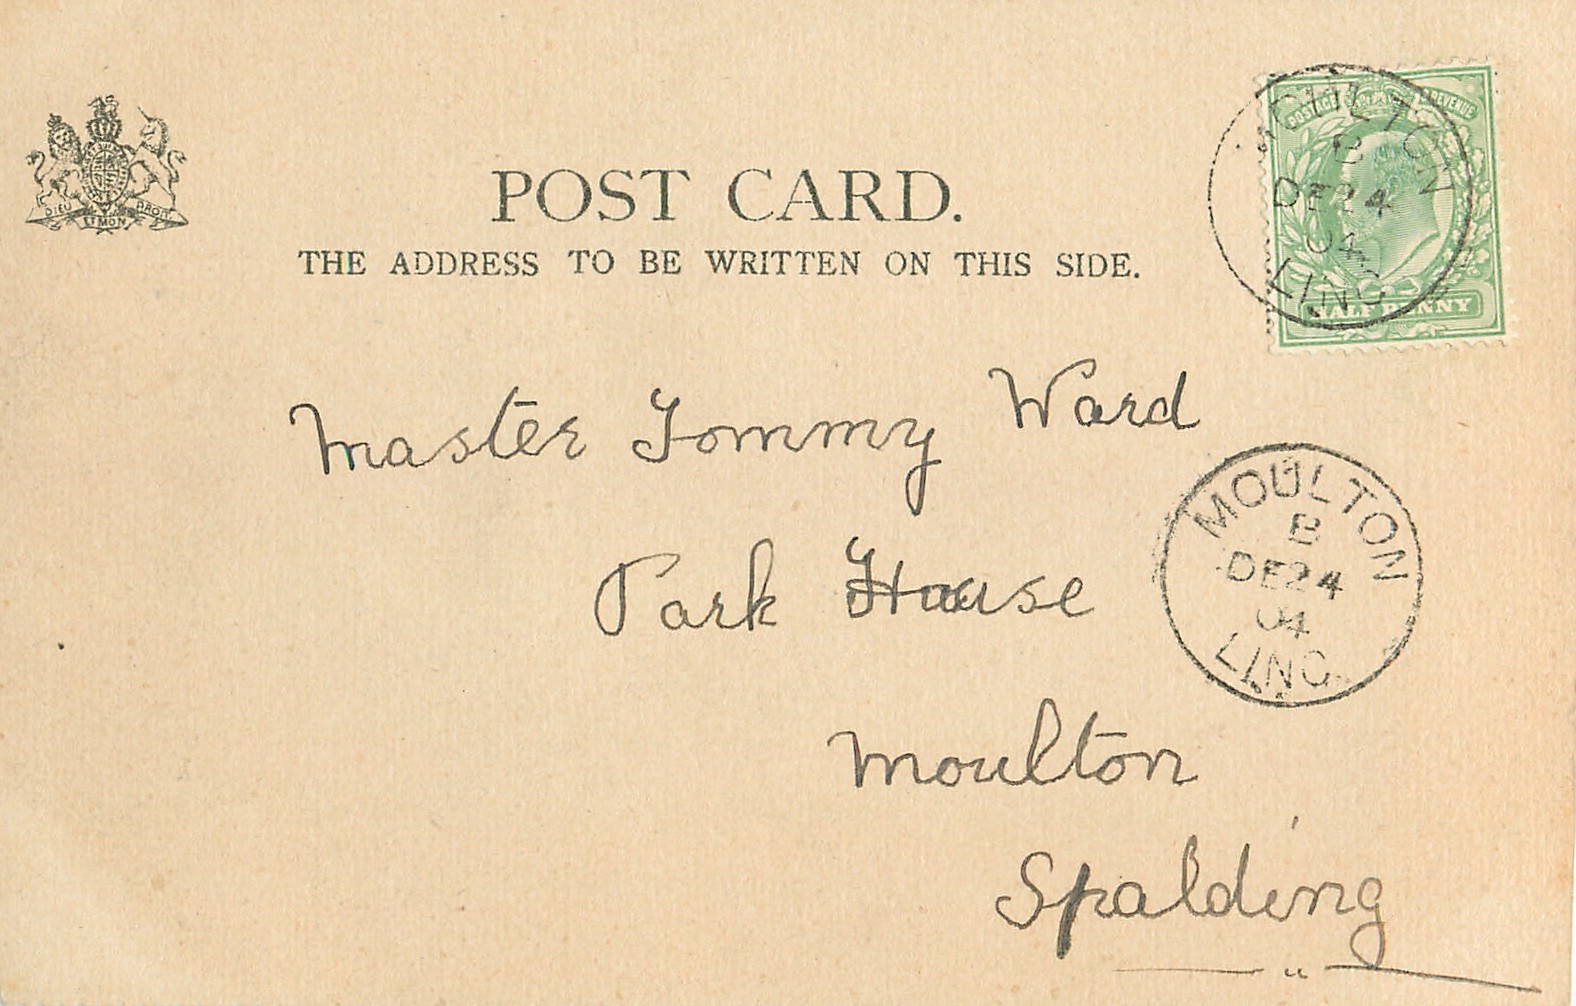 DIEU ET MON DROIT
POST CARD.
THE ADDRESS TO BE WRITTEN ON THIS SIDE.
POSTAGE REVENUE
HALF PENNY
MOULTON
B
DE 24
04
LINC
Master Tommy Ward
Park House
Moulton
Spalding
MOULTON
B
DE 24
04
LINC